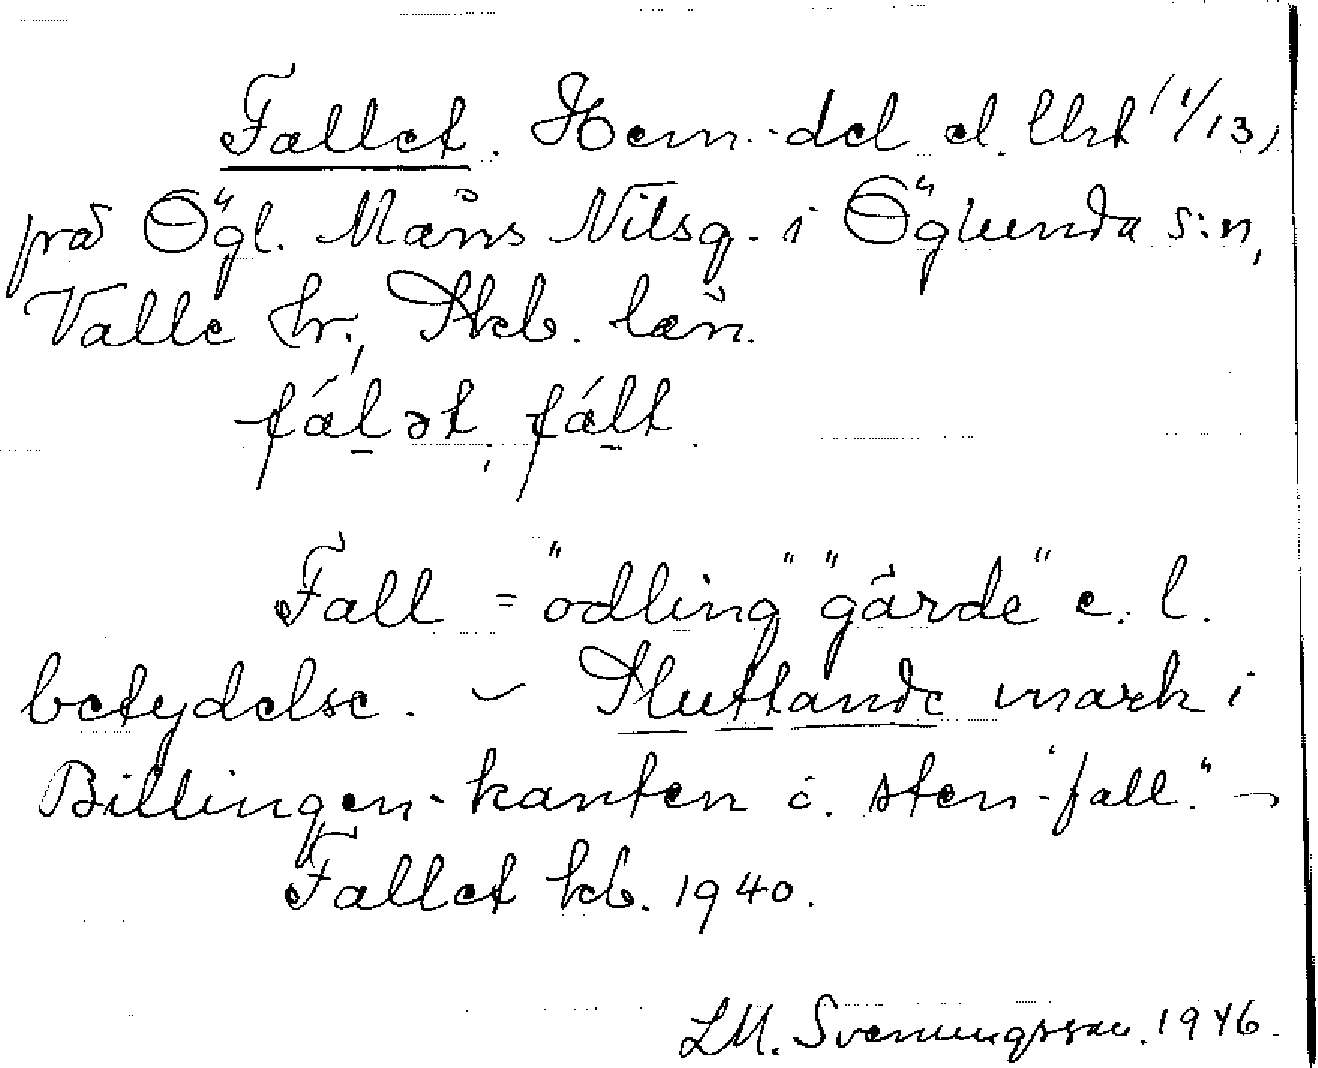 Fallet. Hem.-del el. Urt 1/13,
på Ögl. Måns Nilsg. i Öglunda s:n,
Valle hr., Skb. län.
fáḷət, fáḷt.
Fall = "odling" "gärde" e. l.
betydelse. – Sluttande mark i
Billingen-kanten o. sten-"fall." –
Fallet kb. 1940.
LM. Svenungsson. 1946.